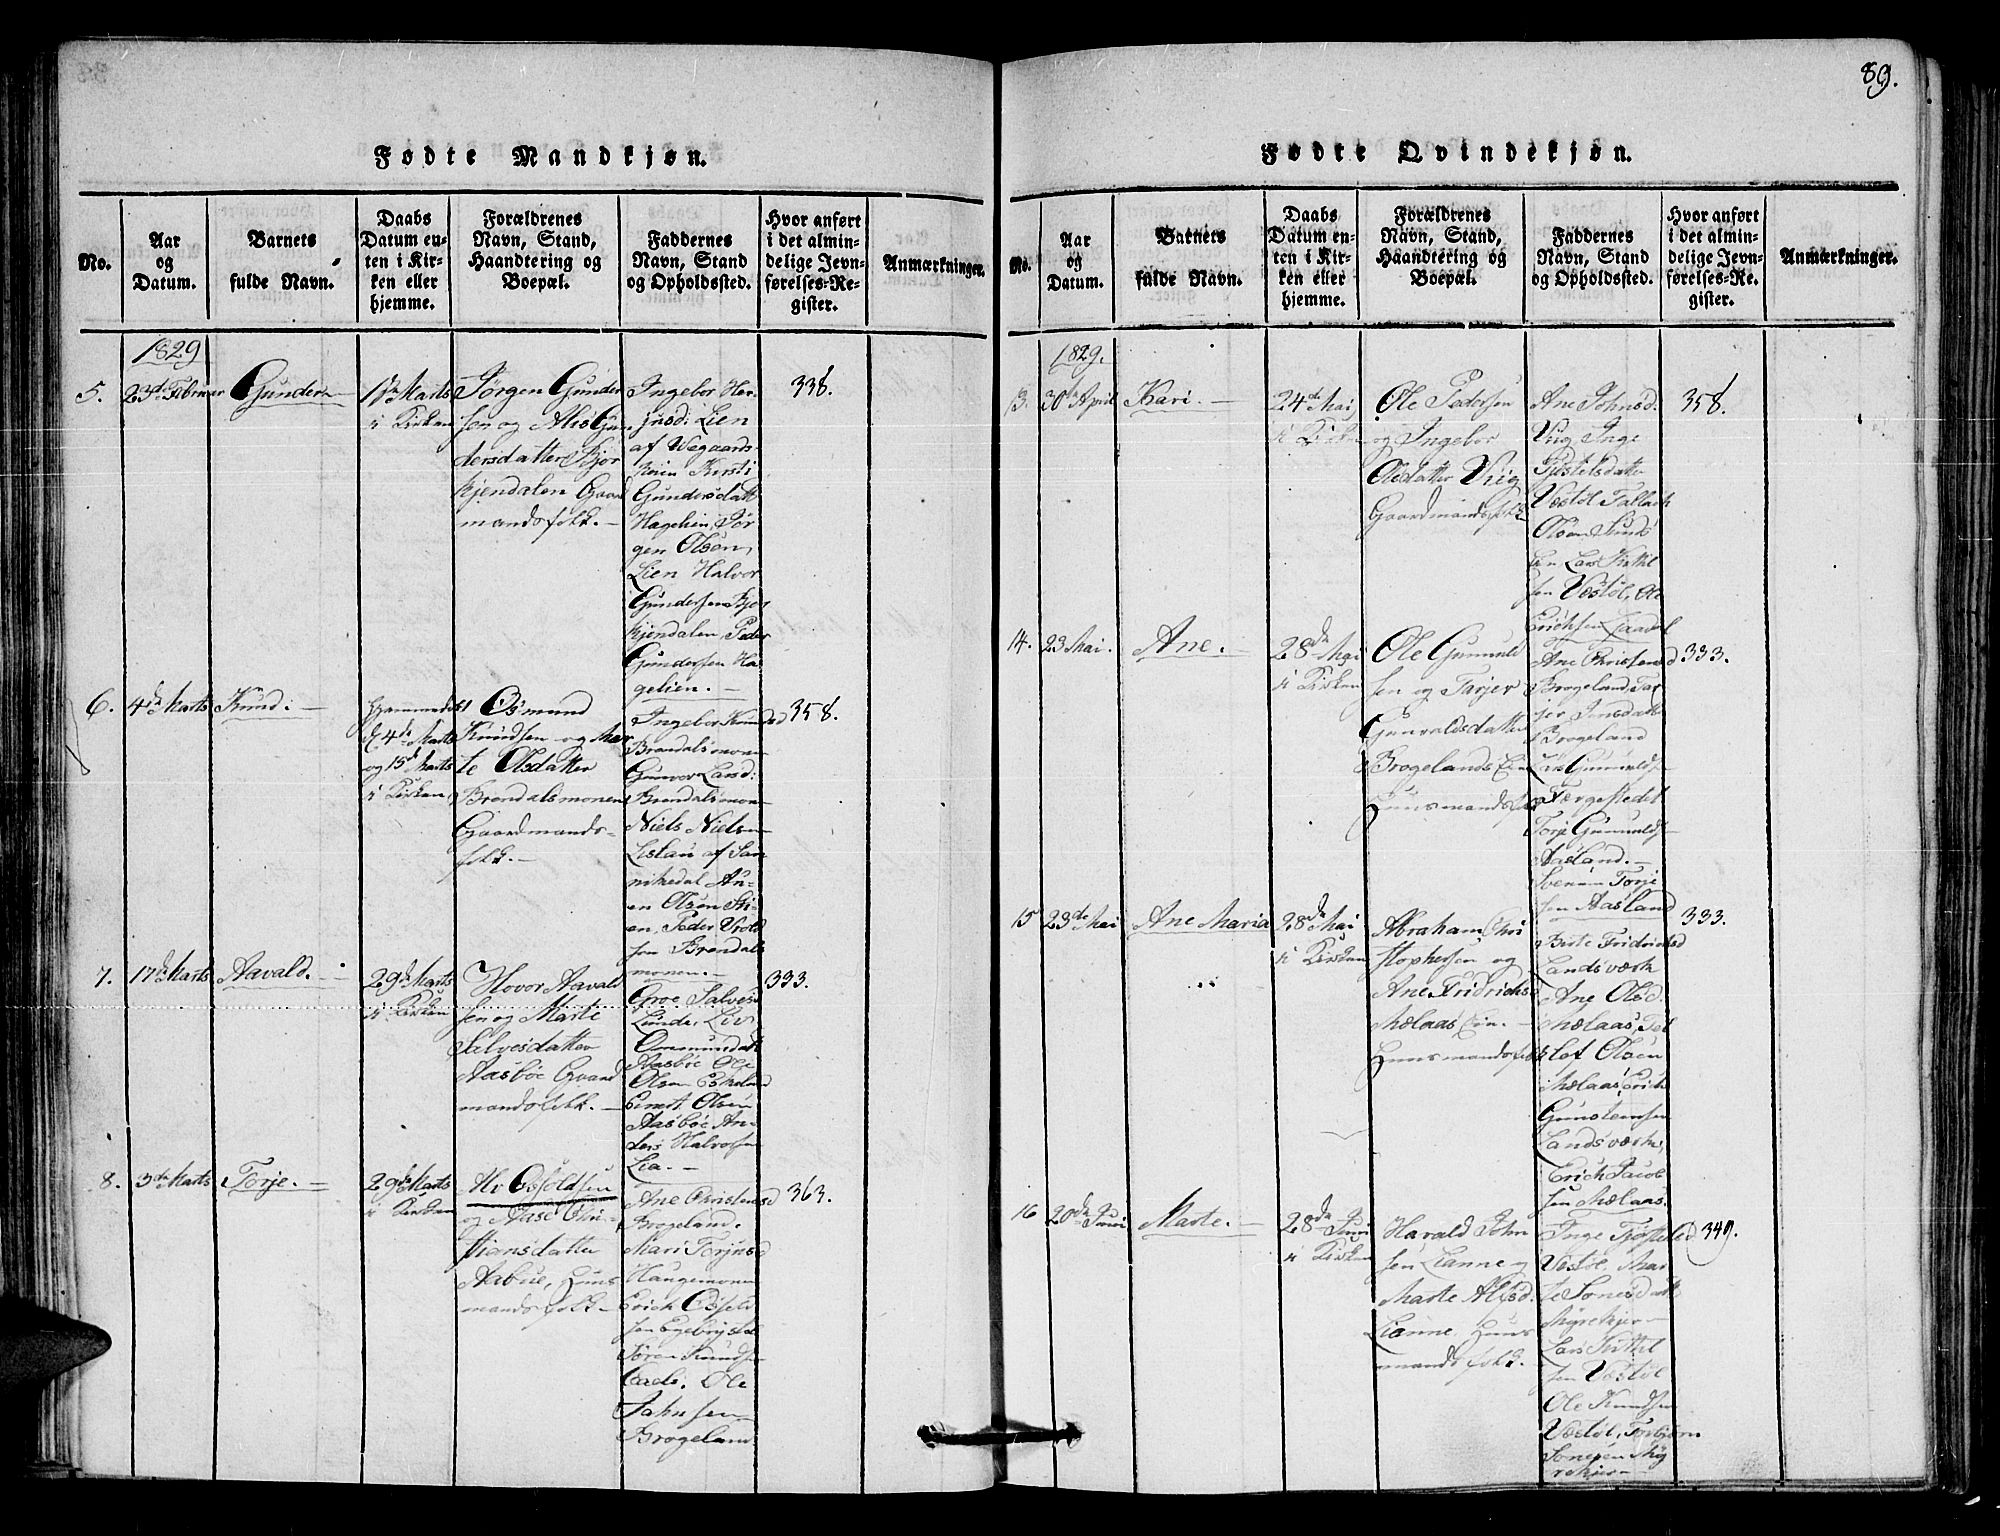 89.
Fødte Mandkjøn.
No.
Aar
og
Datum.
Barnets
fulde Navn.
Daabs
Datum en-
ten i Kir-
ken eller
hjemme.
Forældrenes
Navn, Stand,
Haandtering og
Boepæl.
Faddernes
Navn, Stand
og Opholdssted.
Hvor anført
i det almin-
delige Jevn-
førelses-Re-
gister.
Anmærkninger.
1829
5.
23de Februar
Gunder
i Kirken
Jørgen Gunder
sen og Alis Gun
dersdatter Bjor
kjendalen Gaard
mandsfolk. —
Ingebor Her
jusd: Lien
af Wegaars-
heien Kirsti
Gundersdatt
Hagelien, Jør
gen Olsen,
Lien Halvor
Gundersen Bjor
kjendalen, Peder
Gundersen Ha
gelien. —
338.
6.
4de Marts
Knud. —
Hjemmedøbt
d. 4de Marts
og 15de Marts
i Kirken
Osmund
Knudsen og Mar
te Olsdatter
Brendalsmonen
Gaardmands-
folk. —
Ingebor Knudsd
Brendalsmonen
Gunvor Larsd:
Brendalsmonen
Niels Nielsen
Listau af San
nikedal An-
en Olsen Ski-
en, Peder Vrold
sen Brendals
monen. —
358.
7.
17de Marts
Aavald. —
29de Marts
i Kirken
Hovor Aavald
sen og Marte
Salvesdatter
Aasbøe Gaard
mandsfolk. —
Groe Salvesd
Lunde, Liv
Ommundsdatt
Aasbøe Ole
Olsen Eskeland
Ernst Olsen
Aasbøe An-
ders Halvorsen
Lia. —
333.
8.
3de Marts
Torje. —
29de Marts
i Kirken
Osfoldsen
og Aase Chri-
stiansdatter
Aabue, Huus
mandsfolk —
Ane Christensd
Brogeland.
Mari Torjusd
Haugemonen
Erich Osfold
sen Egebrysdal
Søren Knudsen
Ole
Jahnsen
Brogeland
363.
Fødte Qvindekjøn.
No.
Aar
og
Datum.
Barnets
fulde Navn.
Daabs
Datum en-
ten i Kir-
ken eller
hjemme.
Forældrenes
Navn, Stand,
Haandtering og
Boepæl.
Faddernes
Navn, Stand
og Opholdssted.
Hvor anført
i det almin-
delige Jevn-
førelses-Re-
gister.
Anmærkninger.
1829.
13.
30te April
Kari. —
24de Mai
i Kirken
Ole Pedersen
og Ingebor
Olsdatter Vrig
Gaardmandsfolk
Ane Johnsd.
Inge
Tjøstelsdatter
Vestøl, Tallach
Olsen Sunds
lien Lars Kittil
sen Vestøl, Ole
Erichsen Laavel
358.
14.
23 Mai.
Ane. —
28de Mai
i Kirken
Ole Gunuld
sen og Tarjer
Gunvaldsdatter
Brogelands Ein
Huusmandsfolk
Ane Christensd
Brogeland, Tar
jer Jensdatt
Brogeland
Gunuldsen
Færgestedet
Torje Gunuldsen
Aasland. —
Svenum Torje
sen Aasland
333.
15
23de Mai
Ane Maria
28de Mai
i Kirken
Abraham Chri
stophersen og
Ane Fridrichsd
Mælaas Ein. —
Huusmandsfolk
Birte Fridrichsd
Landsværk
Ane Olsd.
Mælaas, Tel
lef Olsen
Mælaas, Erich
Gunstensen
Landsværk,
Erich Jacob
sen Mælaas.
333.
16
20de Juni
Marte. —
28de Juni
i Kirken
Harald John
sen Lianne og
Marte Alfsd.
Lianne, Huus
mandsfolk.
Inge Tjøstelsd
Vestøl, Mar
te Jonesdatt
Myrekjer —
Lars Kittil
sen Vestøl
Ole Knudsen
Vestøl, Torbjørn
Jonesen Myr
rekjer —
349.